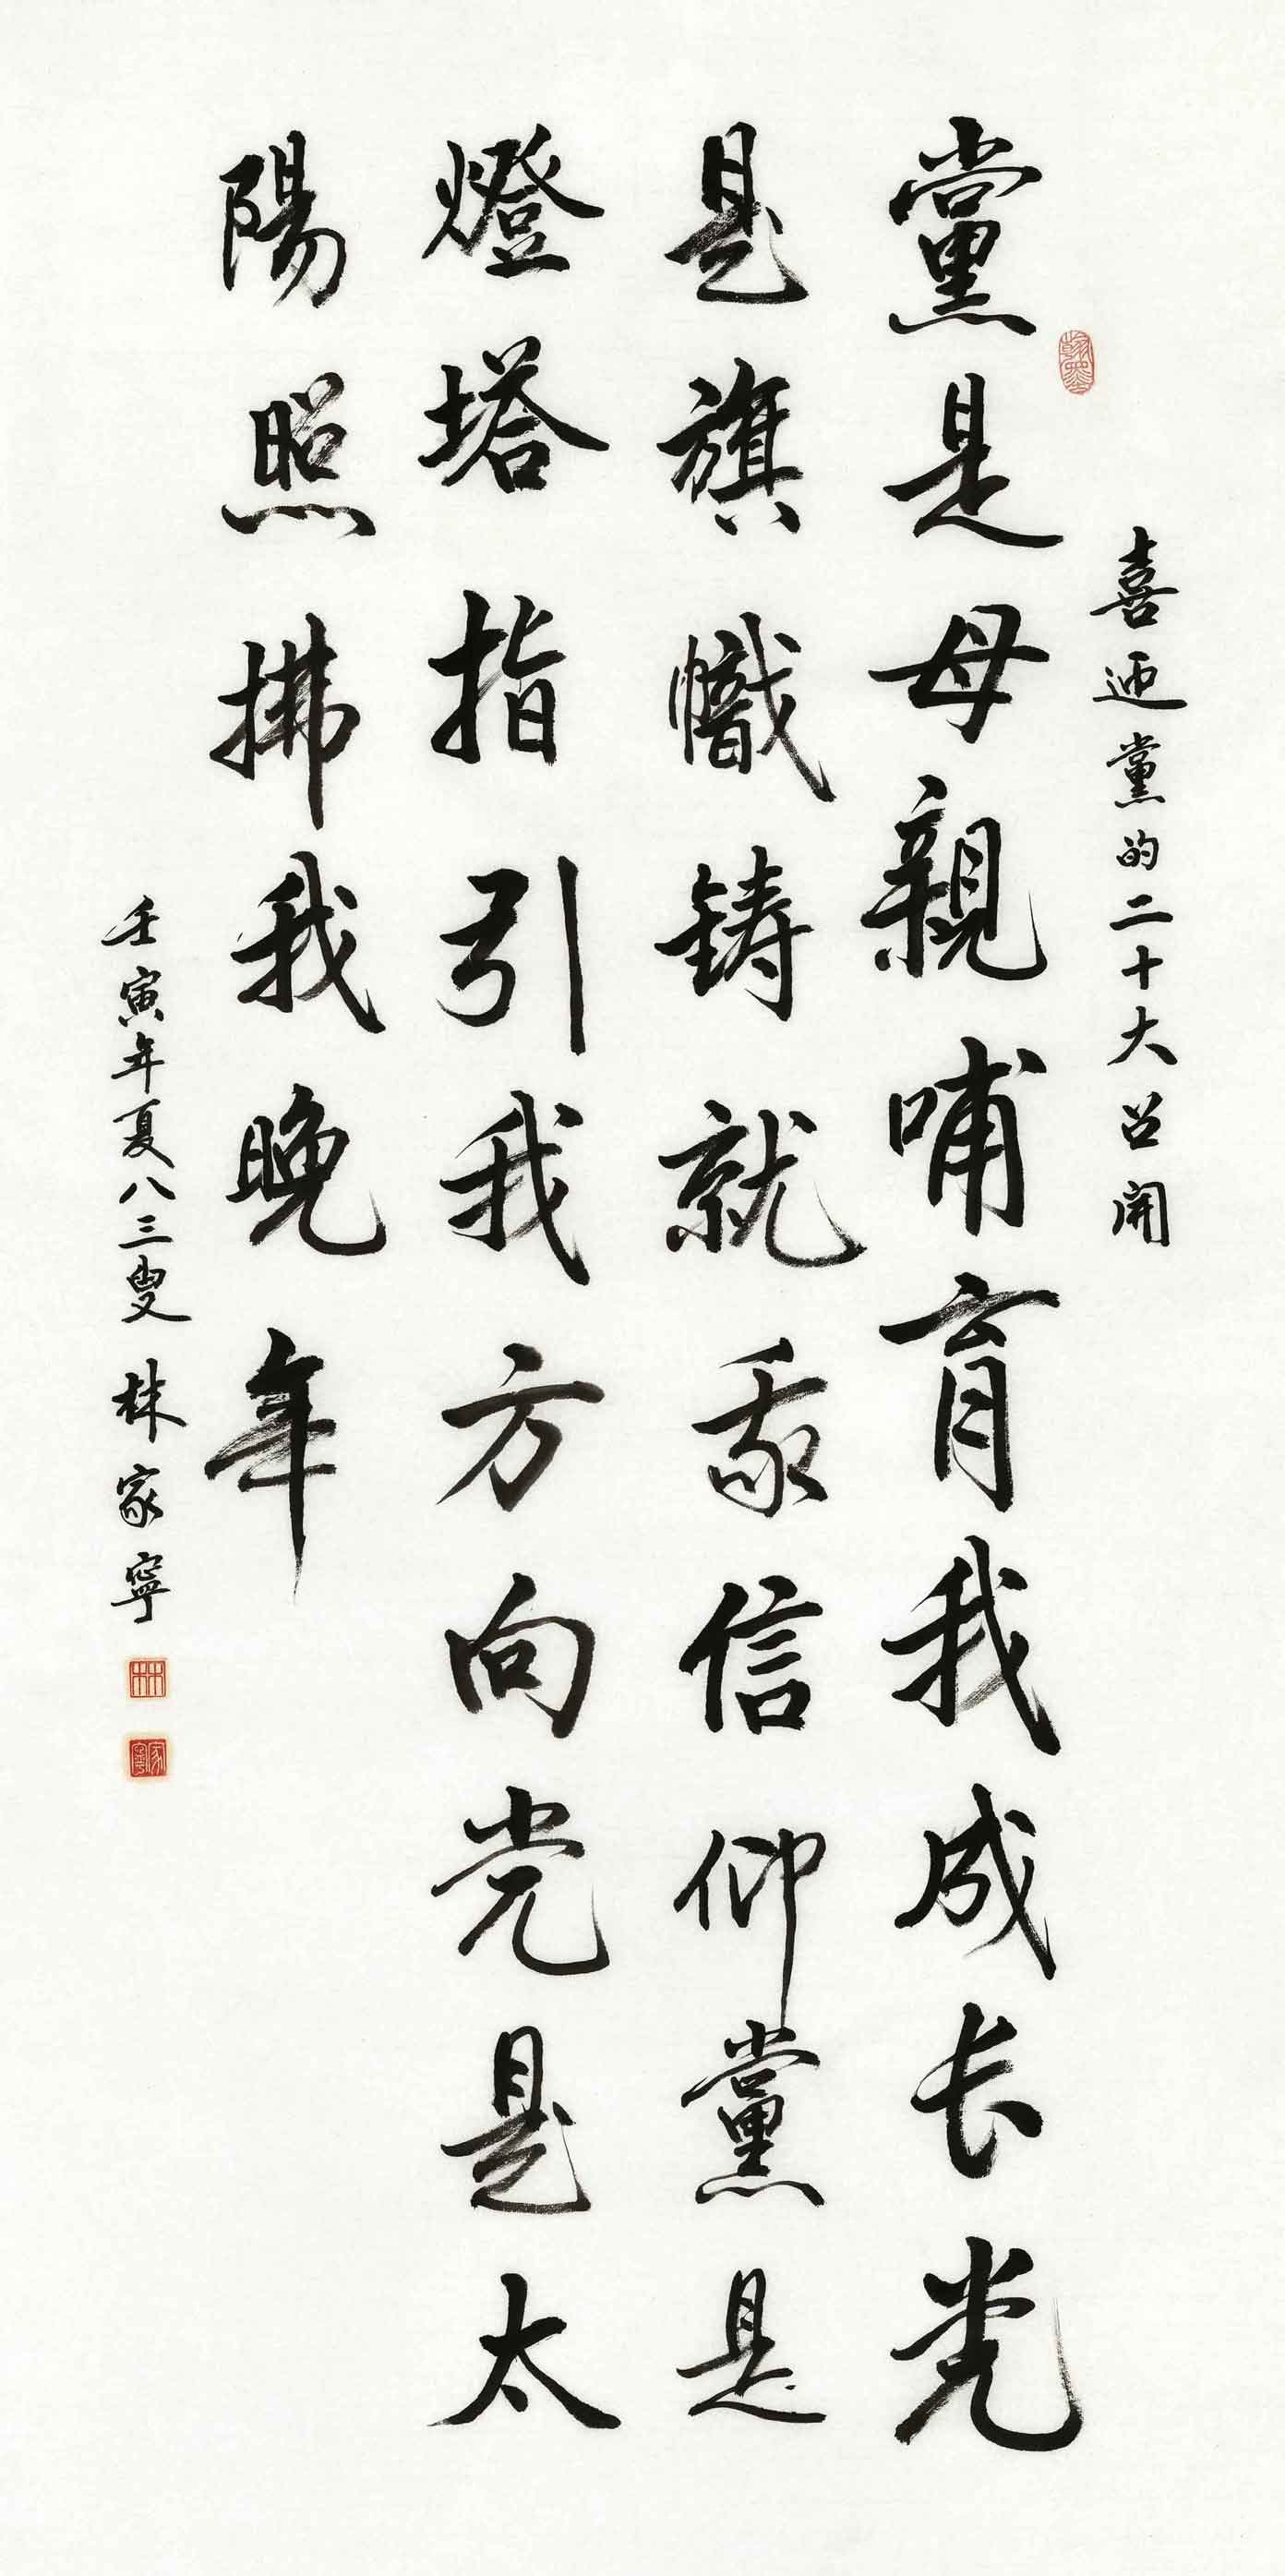 喜迎黨的二十大召開
黨是母親哺育我成长党
是旗幟鋳就我信仰黨是
燈塔指引我方向党是太
陽照拂我晚年
壬寅年夏八三叟林家寧
林
家寧